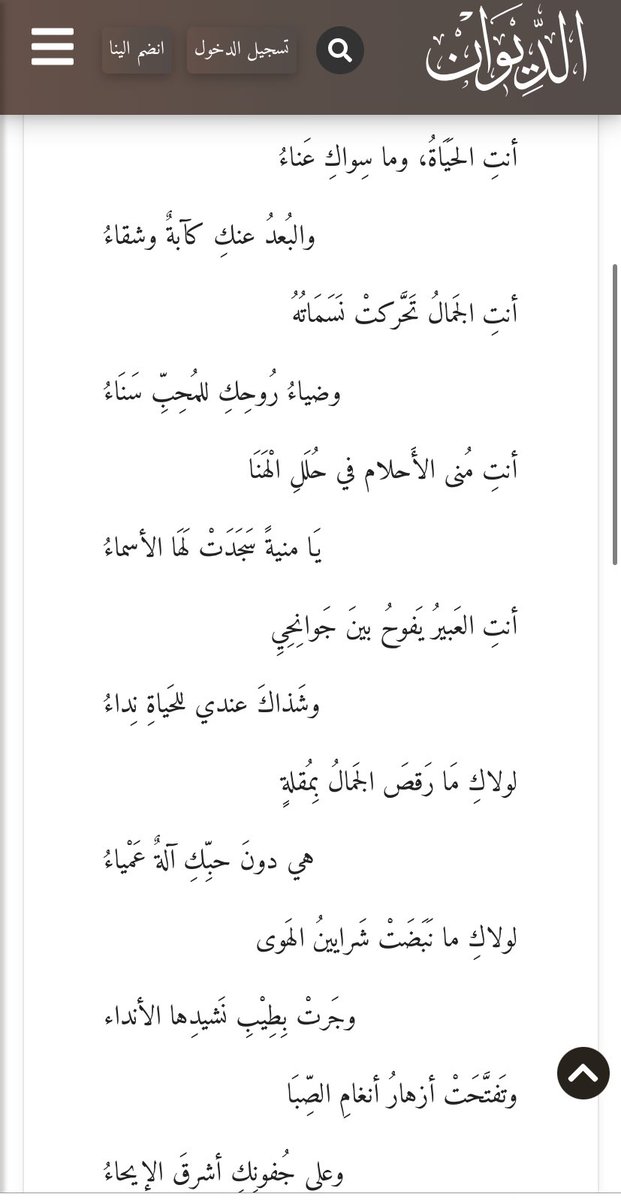 الدِّيوَان
تسجيل الدخول
انضم الينا
أنتِ الحَيَاةُ، وما سِواكِ عَناءُ
والبُعدُ عنكِ كآبةٌ وشقاءُ
أنتِ الجَمالُ تَحَّركتْ نَسَمَاتُهُ
وضياءُ رُوحِكِ للمُحِبِّ سَنَاءُ
أنتِ مُنى الأَحلام في حُلَلِ الْهَنَا
يَا منيةً سَجَدَتْ لَهَا الأسماءُ
أنتِ العَبيرُ يَفوحُ بينَ جَوانِحِيِ
وشَذاكَ عندي للحَياةِ نِداءُ
لولاكِ مَا رَقصَ الجَمالُ بِمُقلةٍ
هي دونَ حبِّكِ آلةٌ عَمْياءُ
لولاكِ ما نَبَضَتْ شَرايينُ الهَوى
وجَرتْ بِطِيْبِ نَشيدِها الأنداء
وتَفتَّحَتْ أزهارُ أنغامِ الصِّبَا
وعلى جُفونِكِ أشرقَ الإيحاءُ